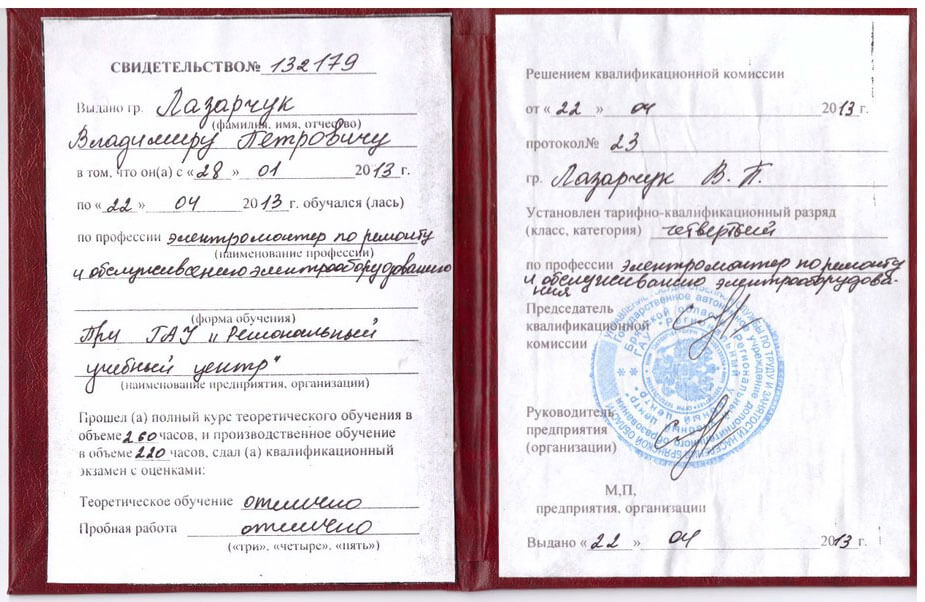 СВИДЕТЕЛЬСТВО№ 132179
Выдано гр. Лазарчук
(фамилия, имя, отчество)
Владимиру Петровичу
в том, что он(а) с «28» 01 2013 г.
по «22» 04 2013 г. обучался (лась)
по профессии электромонтер по ремонту
(наименование профессии)
и обслуживанию электрооборудования
(форма обучения)
При ГАУ „Региональный
учебный центр"
(наименование предприятия, организации)
Прошел (а) полный курс теоретического обучения в
объеме 260 часов, и производственное обучение
в объеме 220 часов, сдал (а) квалификационный
экзамен с оценками:
Теоретическое обучение отлично
Пробная работа отлично
(«три», «четыре», «пять»)
Решением квалификационной комиссии
от «22» 04 2013 г.
протокол№ 23
гр. Лазарчук В. П.
Установлен тарифно-квалификационный разряд
(класс, категория) четвертый
по профессии электромонтер по ремонту
и обслуживанию электрооборудова-
ния
Председатель
квалификационной
комиссии
Руководитель
предприятия
(организации)
М,П,
предприятия, организации
Выдано «22» 04 2013 г.